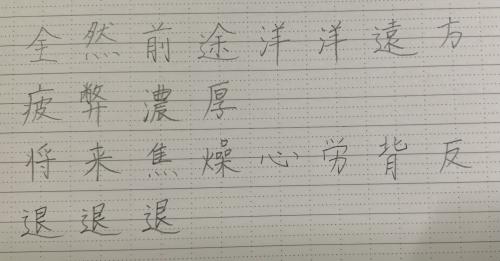 全然前途洋洋遠方
疲弊濃厚
将来焦燥心労背反
退退退